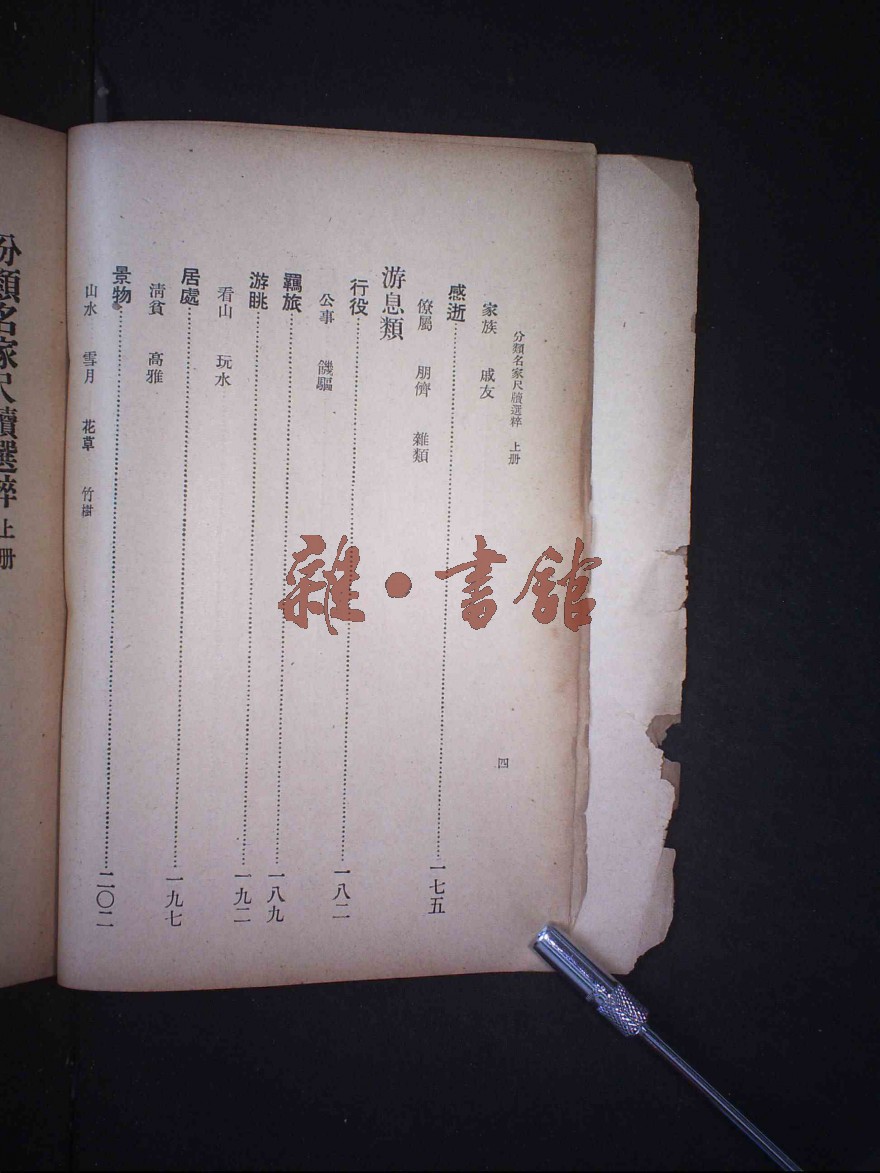 分類名家尺牘選粹 上册
四
家族 戚友
感逝 一七五
僚屬 朋儕 雜類
游息類
行役 一八二
公事 饑驅
羈旅 一八九
游眺 一九二
看山 玩水
居處 一九七
清貧 高雅
景物 二〇二
山水 雪月 花草 竹樹
分類名家尺牘選粹 上册
雜·書館